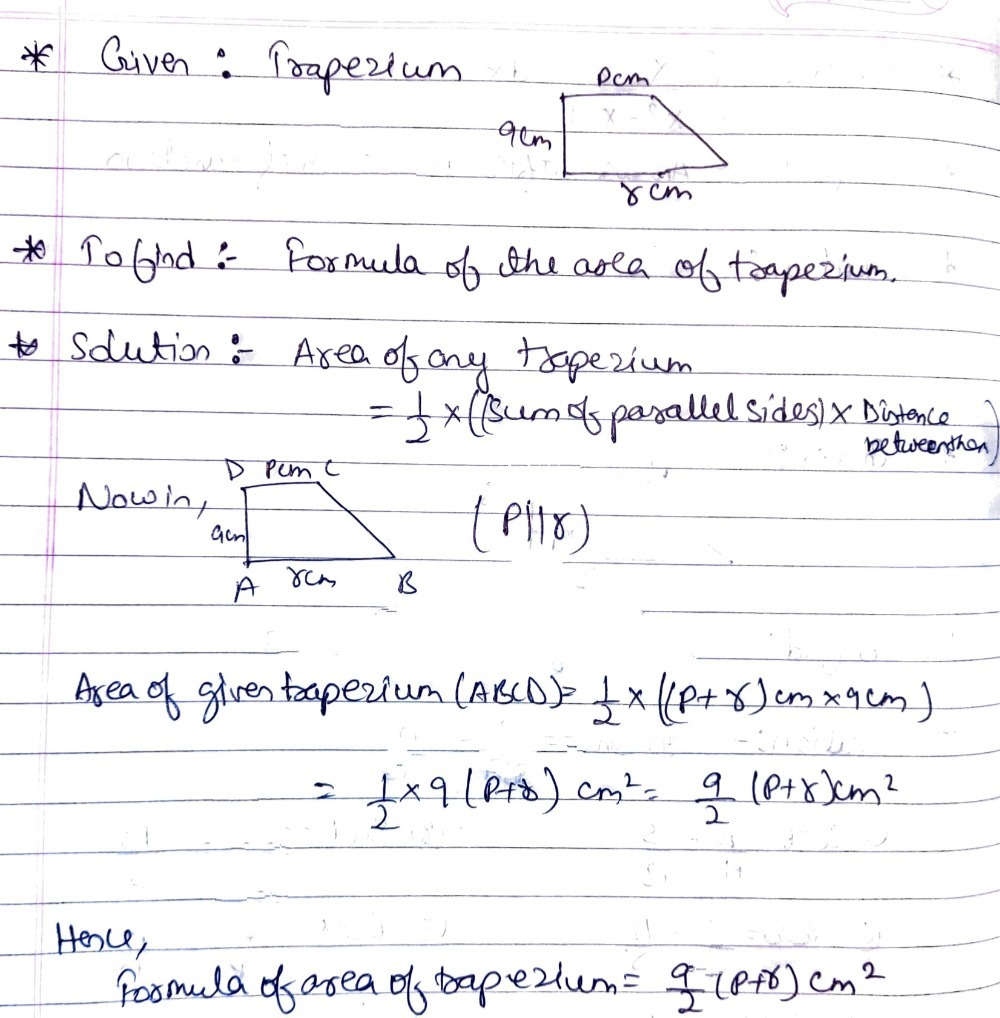 * Given : Trapezium
pcm
qcm
rcm
* To find :- Formula of the area of trapezium.
* Solution :- Area of any trapezium
= 1/2 × ((Sum of parallel sides) × Distence
between then)
D pcm C
Now in,
qcm
(P||r)
A rcm B
Area of given trapezium (ABCD) = 1/2 × ((p+r) cm × qcm)
= 1/2 × q (p+r) cm² = q/2 (p+r) cm²
Hence,
Formula of area of trapezium = q/2 (p+r) cm²